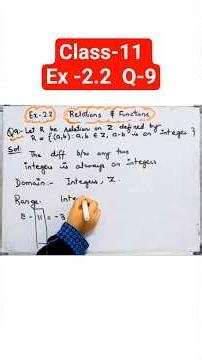 Class-11
Ex -2.2 Q-9
Ex-2.2 Relations & Functions
Q9- Let R be relation on Z defined by
R = {(a,b): a,b ∈ Z, a-b is an integer}
Sol: The diff b/w any two
integers is always an integers
Domain:- Integers, Z.
Range: Inte
8 - 11 = -3